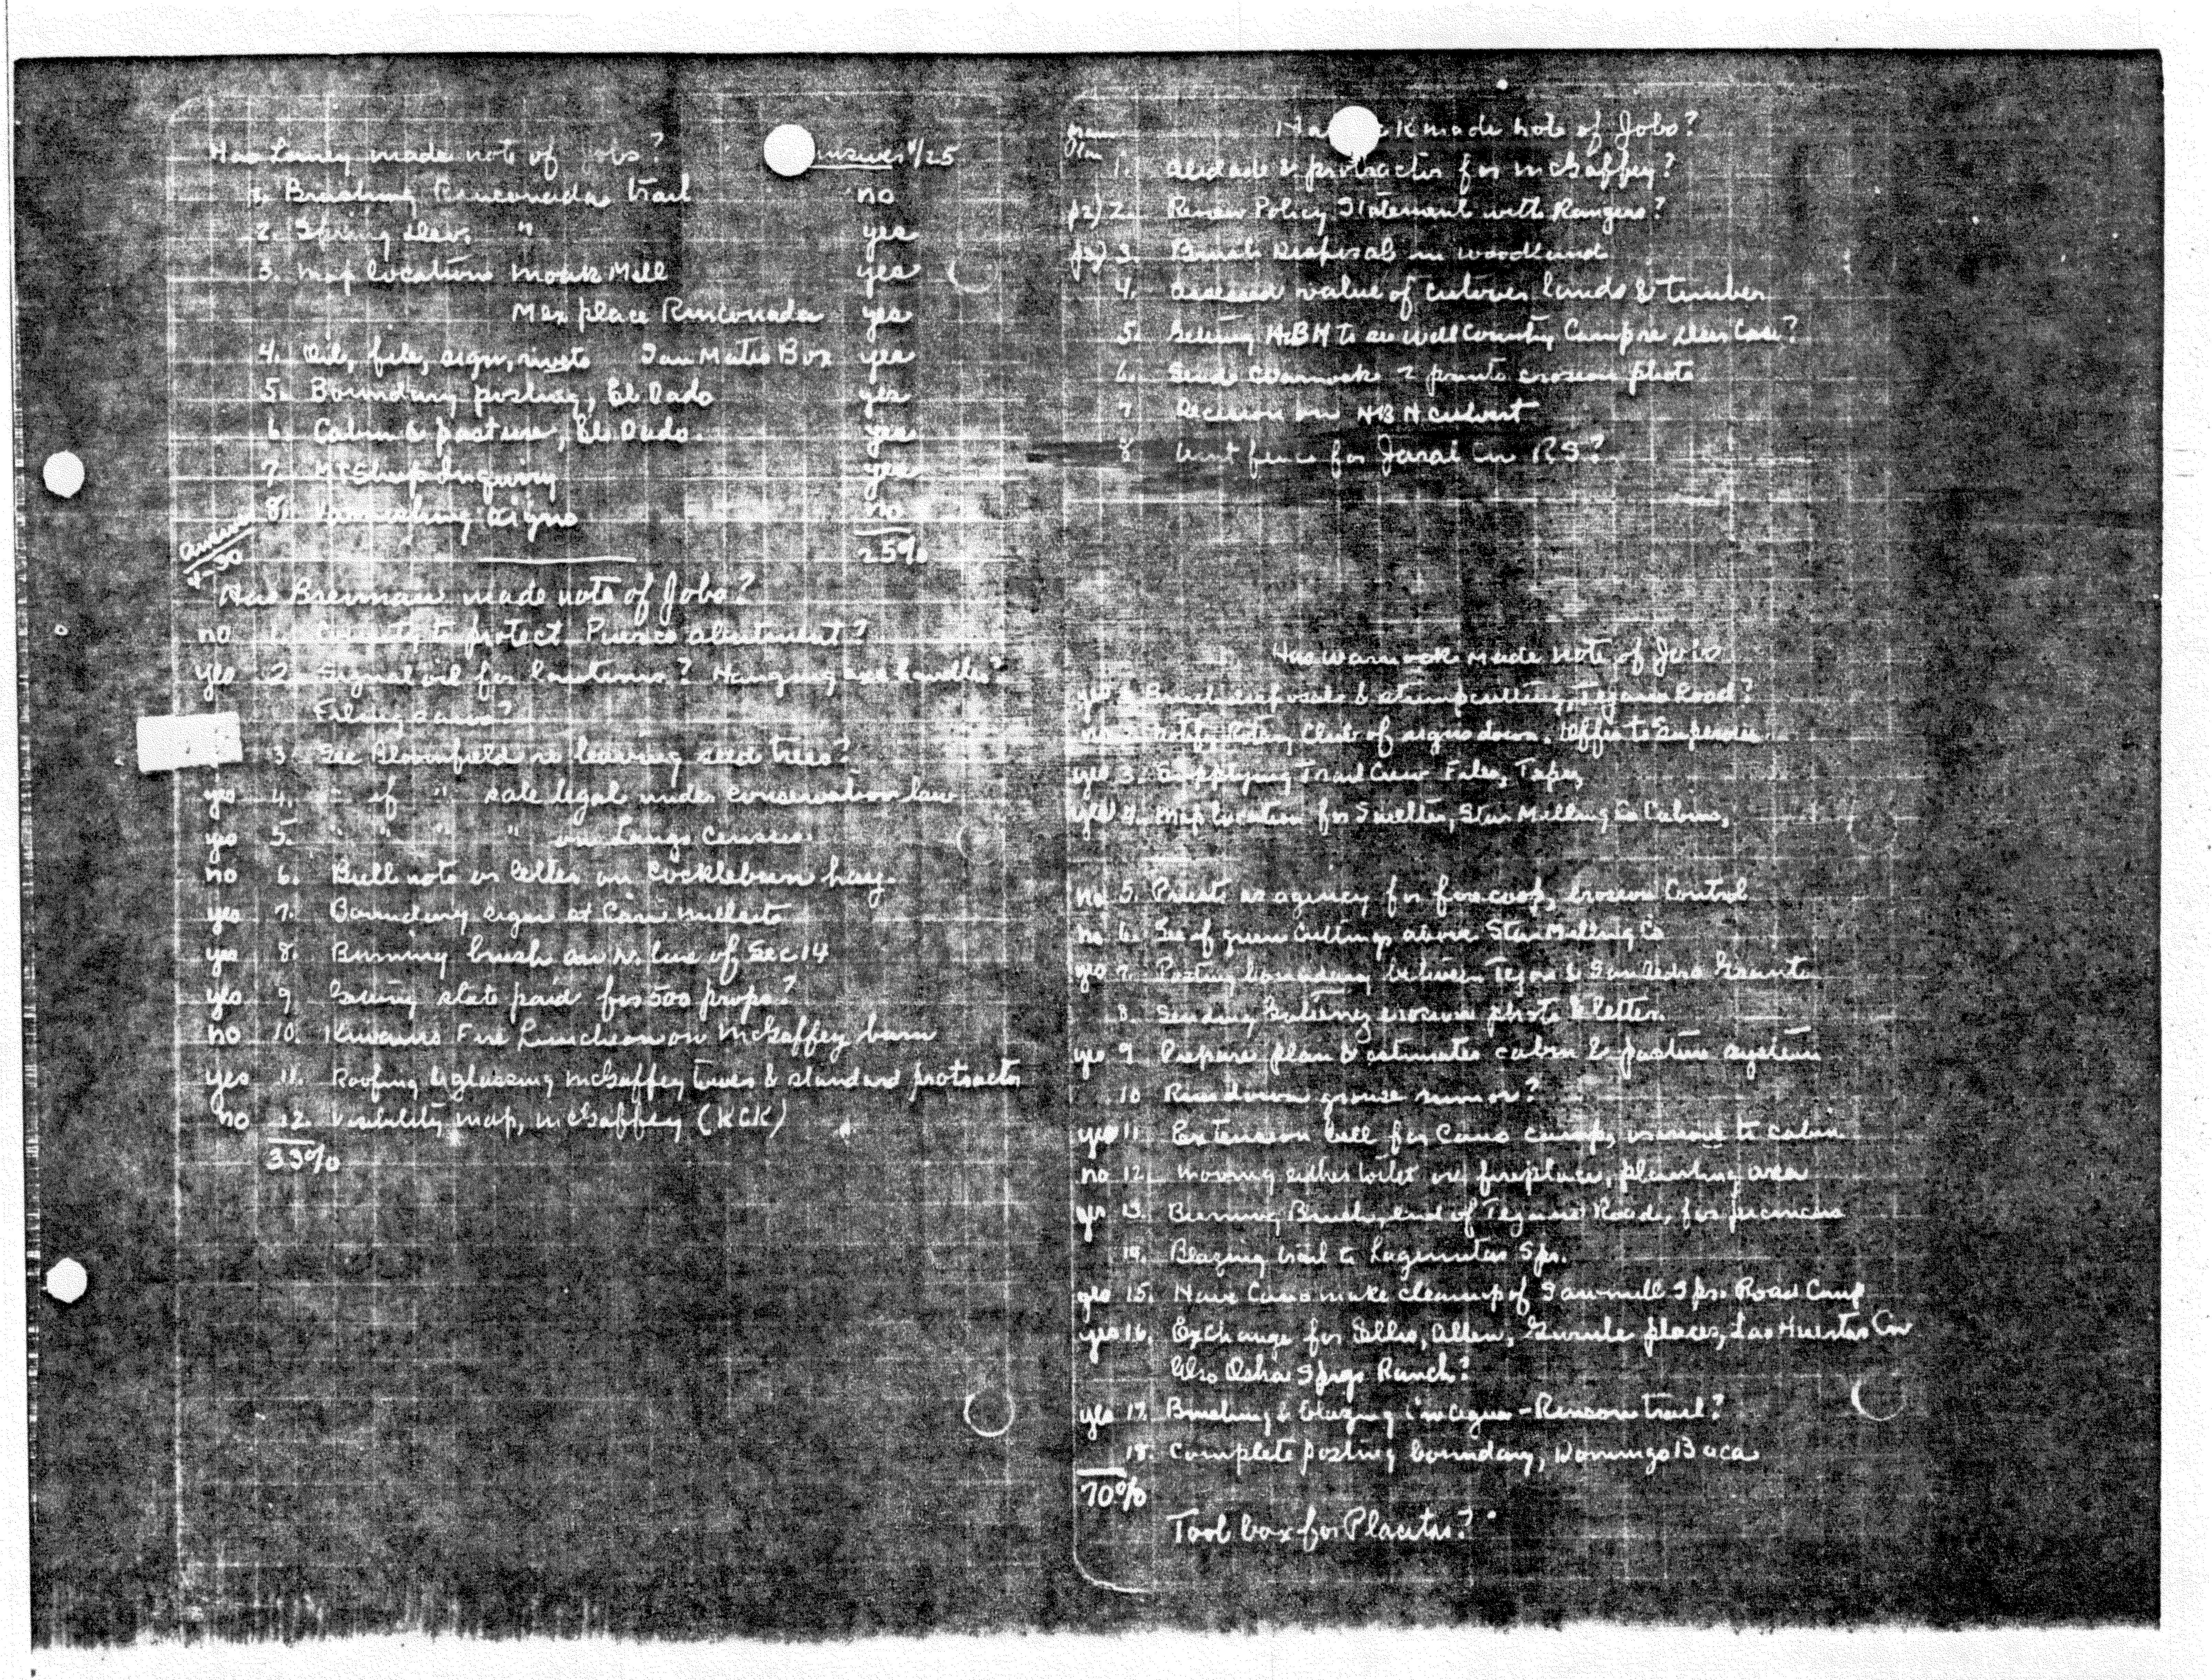 Has Laney made note of jobs? Answers 4/25
1. Brushing Rinconada trail no
2. Spring elev. " yes
3. Map location Monk Mill yes
Mex place Rinconada yes
4. Oil, file, sign, rivets San Mateo Box yes
5. Boundary posting, El Dado yes
6. Cabin & pasture, El Dado. yes
7. Mt Sheep Inquiry yes
8. Varnishing signs no
25%
answers
4-30
Has Brennan made note of Jobs?
no 1. County to protect Puerco abutment?
yes 2. Signal oil for lanterns? Hanging axe handles?
Filing saws?
3. See Bloomfield re leaving seed trees?
yes 4. " if " sale legal under conservation law
yes 5. " " " " on Lango Census.
no 6. Bull note or letter on Cocklebur hay.
yes 7. Boundary sign at
yes 8. Burning brush on N. line of Sec 14
yes 9. Getting state paid for 500 props?
no 10. Kiwanis Fire Luncheon on McGaffey burn
yes 11. Roofing & glassing McGaffey tower & standard protractor
no 12. Visibility map, McGaffey (KCK)
33%
made note of Jobs?
1. Alidade & protractor for McGaffey?
p2) 2. Review Policy Statement with Rangers?
p3) 3. Brush Disposal in woodland
4. Assessed value of cutover lands & timber
5. Getting HBH to see Will County Campre deer Case?
6. Send Warnock 2 prints erosion photo
7 Decision on HBH culvert
8 fence for Jaral Cn R.S.?
Has Warnock made note of Jobs
yes 1. Brush disposal & stump cutting, Tejano Road?
no 2. Notify Rotary Club of signs down. Offer to Supervise.
yes 3. Supplying Trail Crew Files, Tape,
yes 4. Map location for Smelter, Star Milling Co Cabins,
no 5. Priest as agency for fire coop, erosion Control
no 6. See if green cuttings above Star Milling Co
yes 7. Posting boundary between Tejon & San Pedro Grants
8. Sending Gutierrez erosion photo & letter.
yes 9 Prepare plan & estimates cabin & pasture system
10 Run down grouse rumor?
yes 11. Extension bill for Cano camp, remove to cabin
no 12. Moving either toilet or fireplace, planting area
yes 13. Burning Brush, end of Tejano Road, for picnickers
14. Blazing trail to Lagunitas Spr.
yes 15. Have Cano make cleanup of Sawmill Spr. Road Camp
yes 16. Exchange for Ellis, Allen, Gurule places, Las Huertas Cn
Also Osha Spgs Ranch?
yes 17. Brushing & blazing Cienega - Rincon trail?
18. Complete posting boundary, Domingo Baca
70%
Tool box for Placitas?